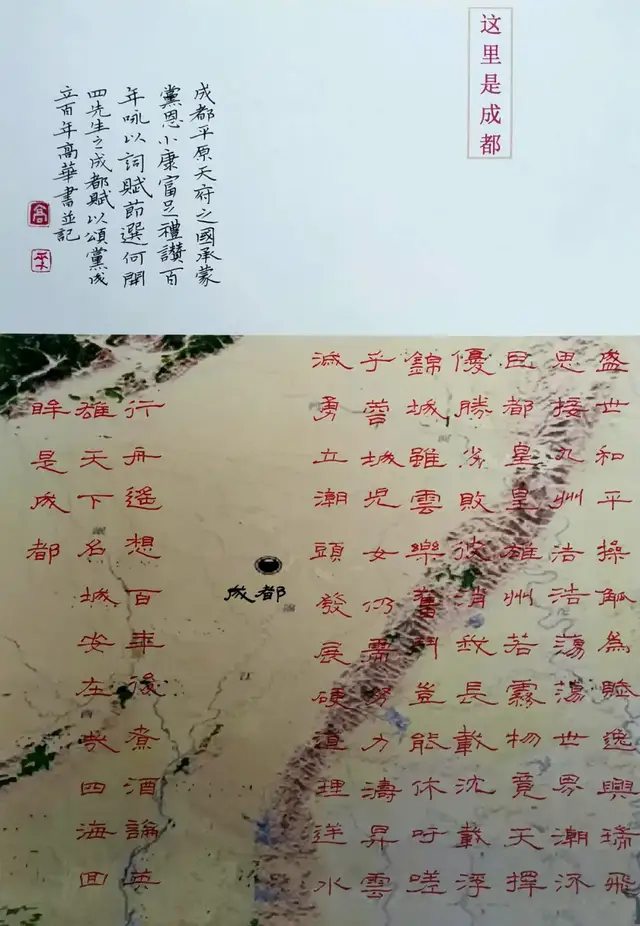 这里是成都
成都平原天府之國承蒙
黨恩小康富足禮讚百
年咏以詞賦節選何開
四先生之成都賦以頌黨成
立百年高華書並記
盛世和平操觚為賦逸興瑞飛
思接九州浩浩蕩蕩世界潮流
巨都皇皇雄州若霧物竟天擇
優勝劣敗彼消我長載沈載浮
錦城雖雲樂奮鬥豈能休吁嗟
乎蓉城兒女仍需努力濤昇雲
滅勇立潮頭發展硬道理逆水
行舟遙想百年後煮酒論英
雄天下名城安在哉四海回
眸是成都
成都